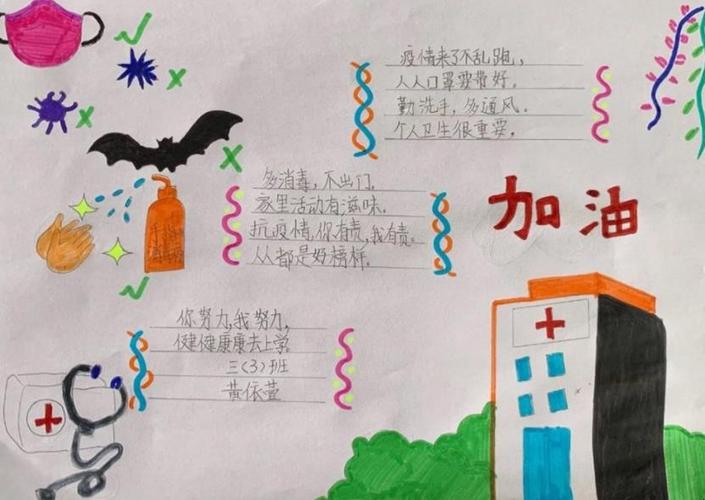 疫情来了不乱跑，
人人口罩要带好。
勤洗手，多通风。
个人卫生很重要。
加油
多消毒，不出门。
家里活动有滋味。
抗疫情，你有责，我有责。
从都是好榜样。
你努力，我努力，
健健康康去上学。
三（3）班
黄依萱